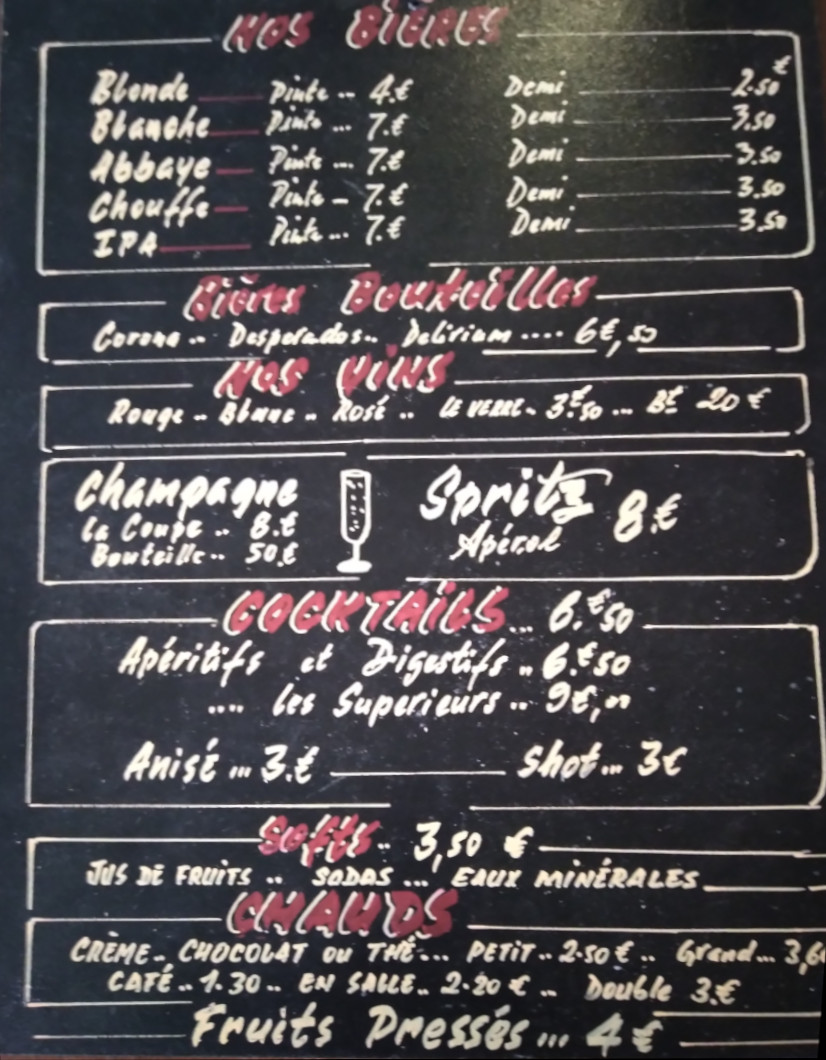 NOS BIÈRES
Blonde Pinte .. 4.€ Demi 2.50€
Blanche Pinte ... 7.€ Demi 3.50
Abbaye Pinte ... 7.€ Demi 3.50
Chouffe Pinte - 7.€ Demi 3.50
IPA Pinte ... 7.€ Demi 3.50
Bières Bouteilles
Corona .. Desperados.. Delirium .... 6€,50
NOS VINS
Rouge .. Blanc .. Rosé .. LE VERRE - 3.€50 ... Bt 20 €
Champagne
la Coupe .. 8.€
Bouteille .. 50.€
Spritz 8.€
Apérol
COCKTAILS ... 6.€50
Apéritifs et Digestifs .. 6.€50
.... les Superieurs .. 9€,00
Anisé ... 3.€ Shot ... 3€
Softs .. 3,50 €
JUS DE FRUITS .. SODAS ... EAUX MINÉRALES
CHAUDS
CRÈME - CHOCOLAT OU THÉ ... PETIT .. 2.50 € .. Grand ...
CAFÉ .. 1.30 .. EN SALLE .. 2.20 € .. Double 3.€
Fruits Pressés ... 4 €